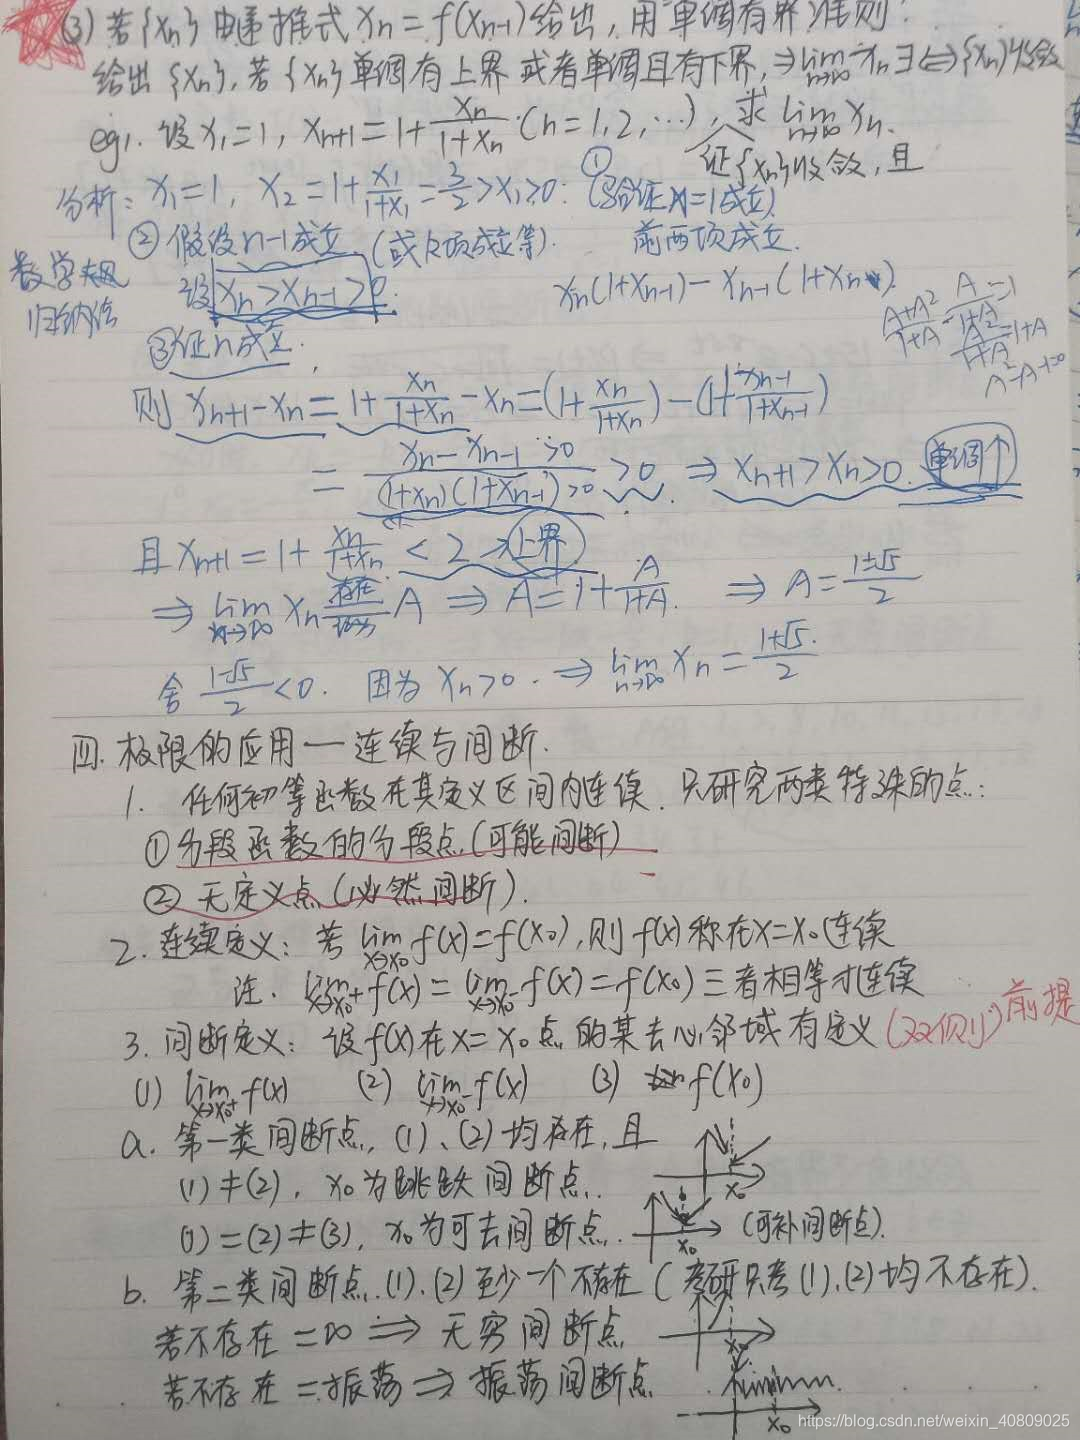 (3) 若{Xn}由递推式 Xn = f(Xn-1)给出, 用"单调有界"准则.
给出{Xn}, 若{Xn}单调有上界 或者单调且有下界, ⇒ lim n→∞ Xn ∃ ⇔ {Xn}收敛
eg1. 设 X1=1, Xn+1 = 1 + Xn/(1+Xn) (n=1,2,…), 求 lim n→∞ Xn.
证{Xn}收敛, 且
分析: X1=1, X2 = 1 + X1/(1+X1) = 3/2 > X1 > 0. ① (验证n=1成立)
② 假设n-1成立 (或k项成立等). 前两项成立.
数学
归纳法
设 Xn > Xn-1 > 0. Xn(1+Xn-1) - Xn-1(1+Xn)
(A+A²)/(1+A) A/(1+A) = A-1
A²/(1+A) = 1+A
A²-A-1=0
③ 证n成立.
则 Xn+1 - Xn = 1 + Xn/(1+Xn) - Xn = (1 + Xn/(1+Xn)) - (1 + Xn-1/(1+Xn-1))
= (Xn - Xn-1 >0)/((1+Xn)(1+Xn-1) >0) > 0 ⇒ Xn+1 > Xn > 0. 单调↑
且 Xn+1 = 1 + Xn/(1+Xn) < 2 → 上界
⇒ lim n→∞ Xn 存在 A ⇒ A = 1 + A/(1+A) ⇒ A = (1±√5)/2
舍 (1-√5)/2 < 0. 因为 Xn > 0. ⇒ lim n→∞ Xn = (1+√5)/2
四. 极限的应用 — 连续与间断.
1. 任何初等函数在其定义区间内连续. 只研究两类特殊的点:
① 分段函数的分段点 (可能间断)
② 无定义点 (必然间断).
2. 连续定义: 若 lim x→x0 f(x) = f(x0), 则 f(x) 称在x=x0连续
注. lim x→x0+ f(x) = lim x→x0- f(x) = f(x0) 三者相等才连续
3. 间断定义: 设f(x)在x=x0点的某去心邻域有定义 (双侧) 前提
(1) lim x→x0+ f(x) (2) lim x→x0- f(x) (3) f(x0)
a. 第一类间断点, (1)、(2)均存在, 且
(1)≠(2), x0为跳跃间断点. x0
(1)=(2)≠(3), x0为可去间断点. x0 (可补间断点).
b. 第二类间断点. (1)、(2)至少一个不存在 (考研只考(1)、(2)均不存在).
若不存在 = ∞ ⇒ 无穷间断点 x0
若不存在 = 振荡 ⇒ 振荡间断点 x0
https://blog.csdn.net/weixin_40809025